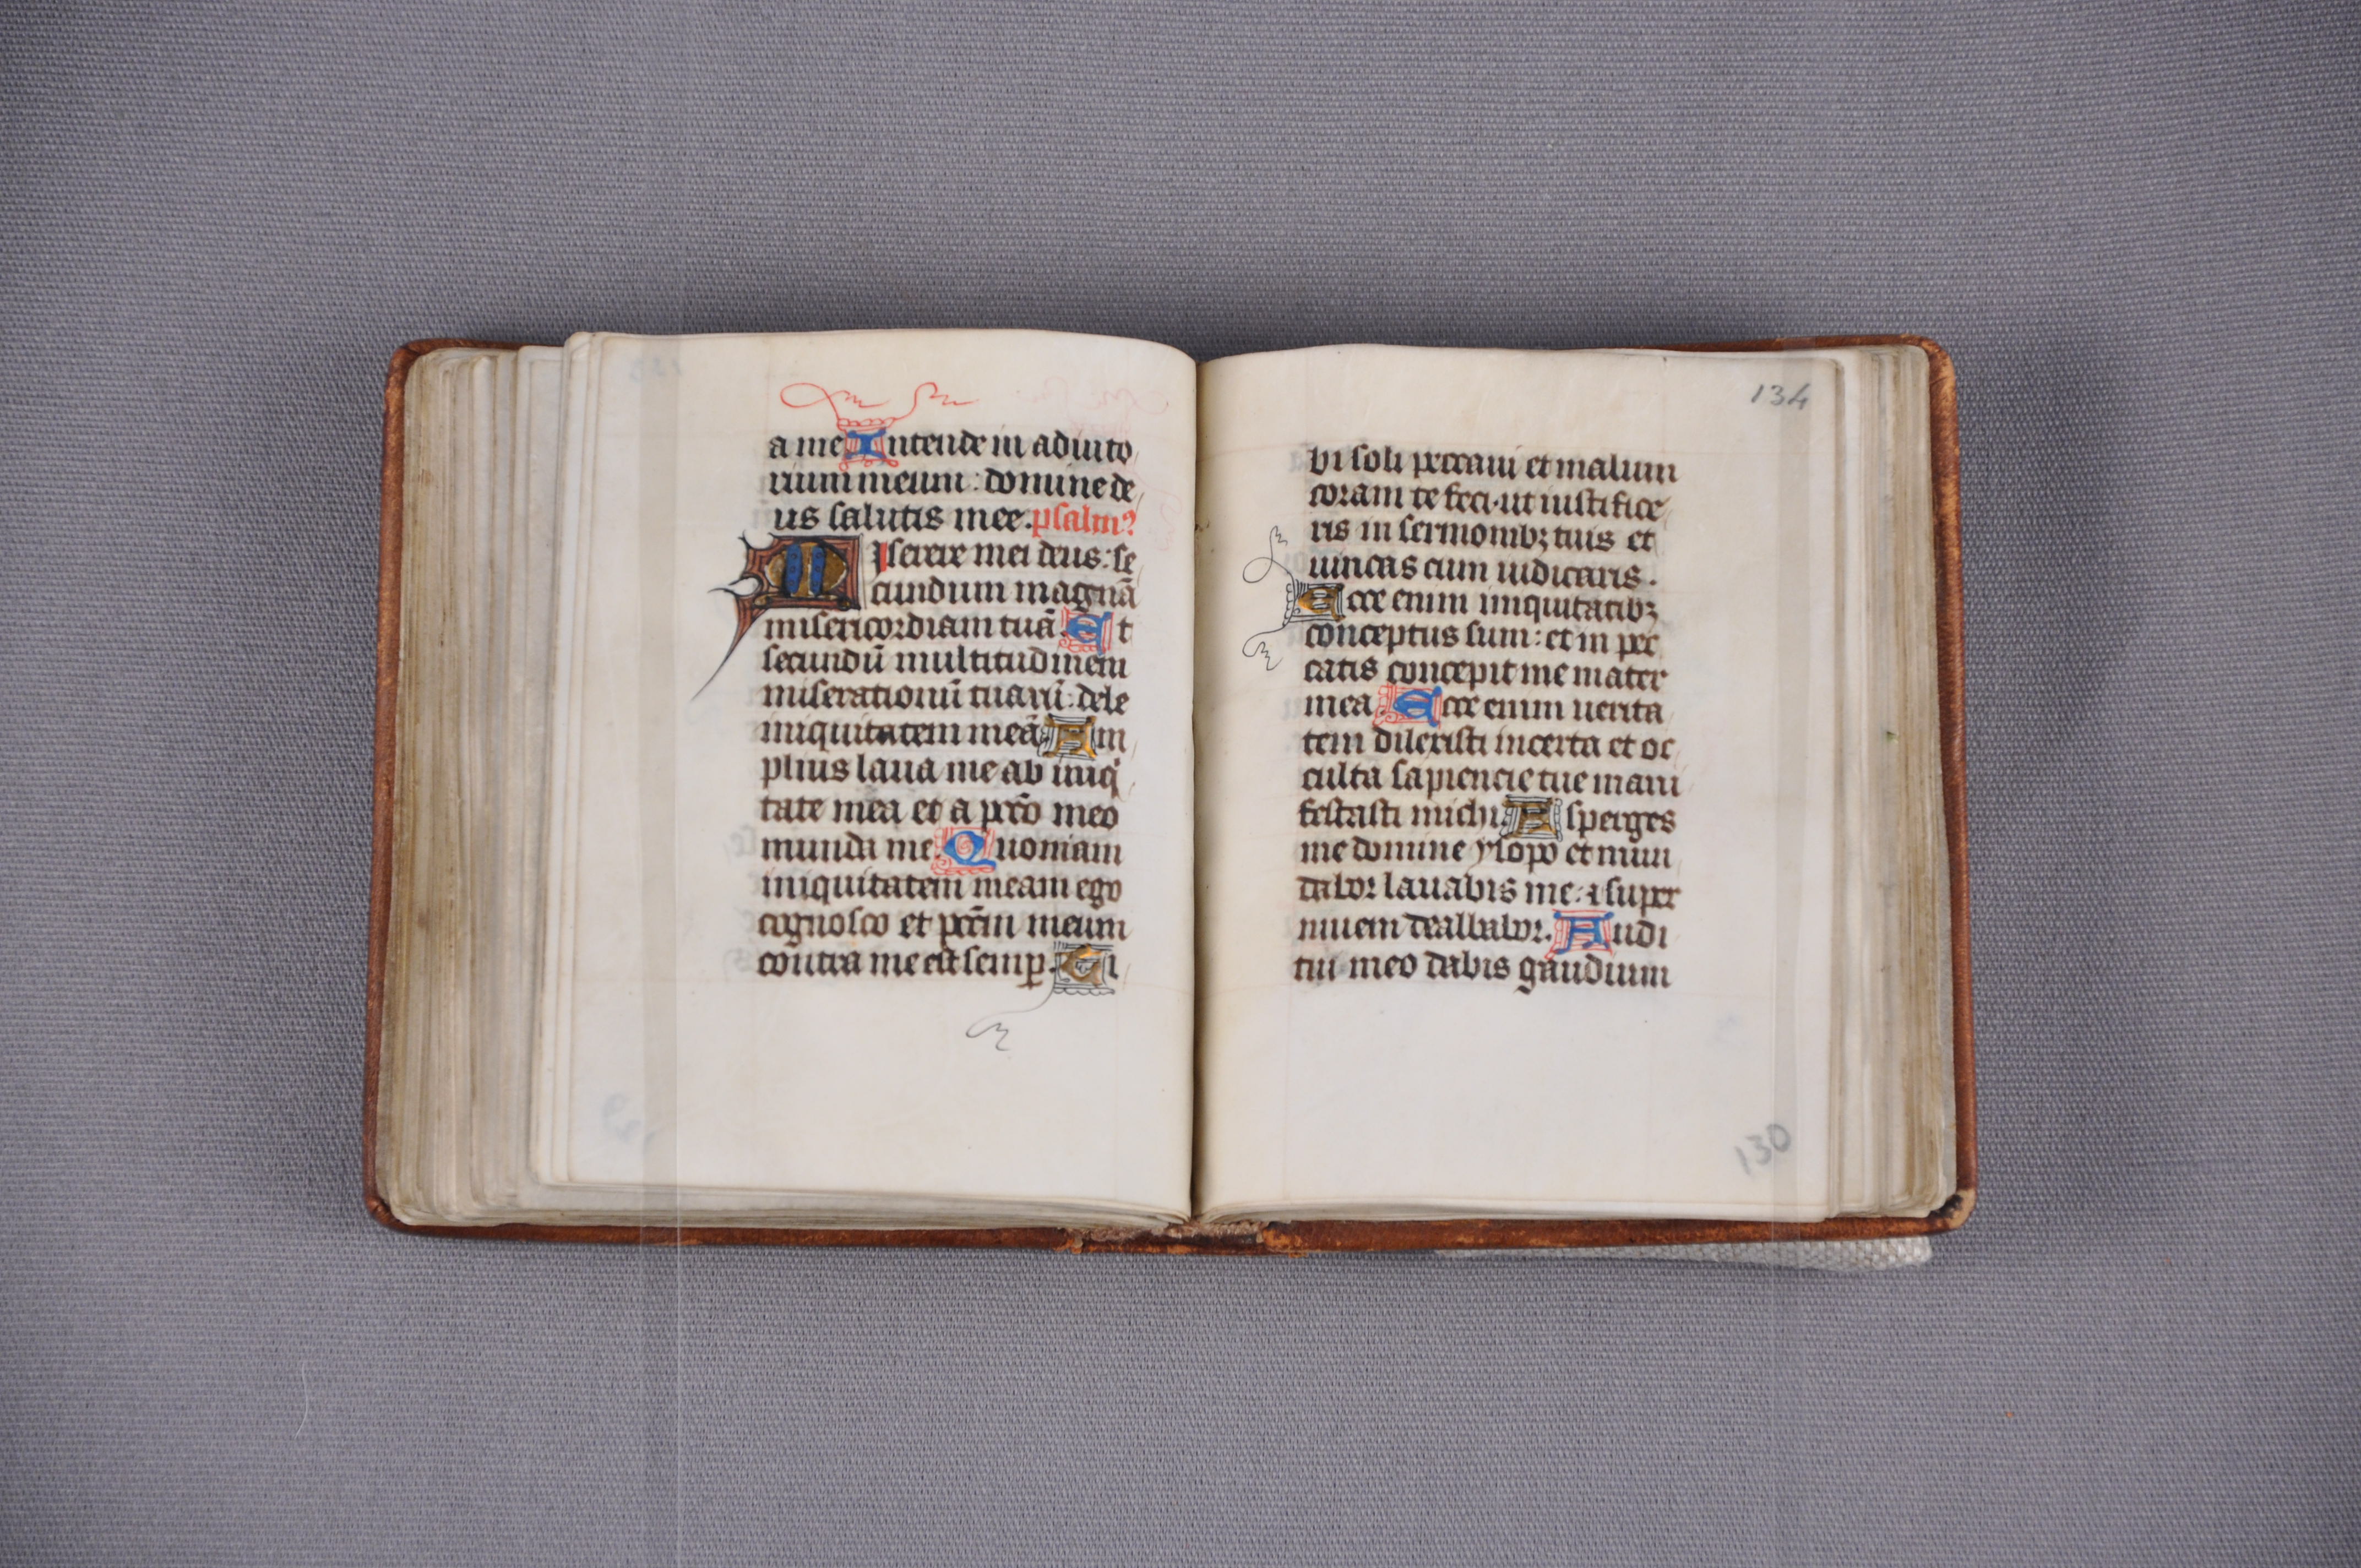 a me Intende in adiuto
rium meum : domine de
us salutis mee. psalm⁹
Miserere mei deus : se
cundum magnā
misericordiam tuā. Et
secundū multitudinem
miserationū tuarū : dele
iniquitatem meā. Am
plius laua me ab iniq
tate mea et a pcc̄o meo
munda me. Quoniam
iniquitatem meam ego
cognosco et pcc̄m meum
contra me est semꝑ. Ti
134
bi soli peccaui et malum
coram te feci · ut iustifice
ris in sermonibꝫ tuis et
uincas cum iudicaris .
Ecce enim iniquitatibꝫ
conceptus sum : et in pec
catis concepit me mater
mea. Ecce enim uerita
tem dilexisti incerta et oc
culta sapiencie tue mani
festasti michi. Asperges
me domine ysopo et mun
dabor lauabis me : ⁊ super
niuem dealbabor. Audi
tui meo dabis gaudium
130